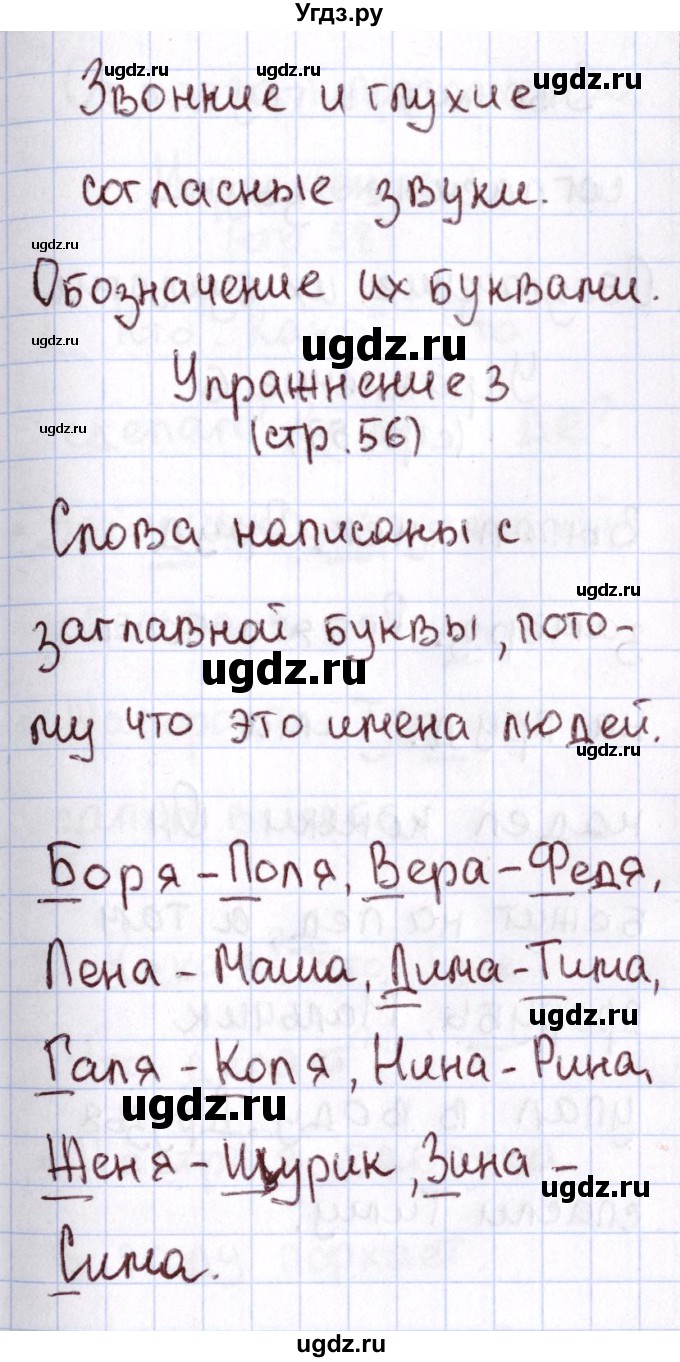 Угдз.ру
ugdz.ru ugdz.ru ugdz.ru
Звонкие и глухие
согласные звуки.
ugdz.ru
Обозначение их буквами.
ugdz.ru ugdz.ru
Упражнение 3
ugdz.ru (стр. 56)
Слова написаны с
ugdz.ru
заглавной буквы, пото-
ugdz.ru
му что это имена людей.
ugdz.ru
Боря - Поля, Вера - Федя,
Лена - Маша, Дима - Тима,
ugdz.ru
Галя - Коля, Нина - Рина,
ugdz.ru
Женя - Шурик, Зина -
ugdz.ru
Сима.
ugdz.ru